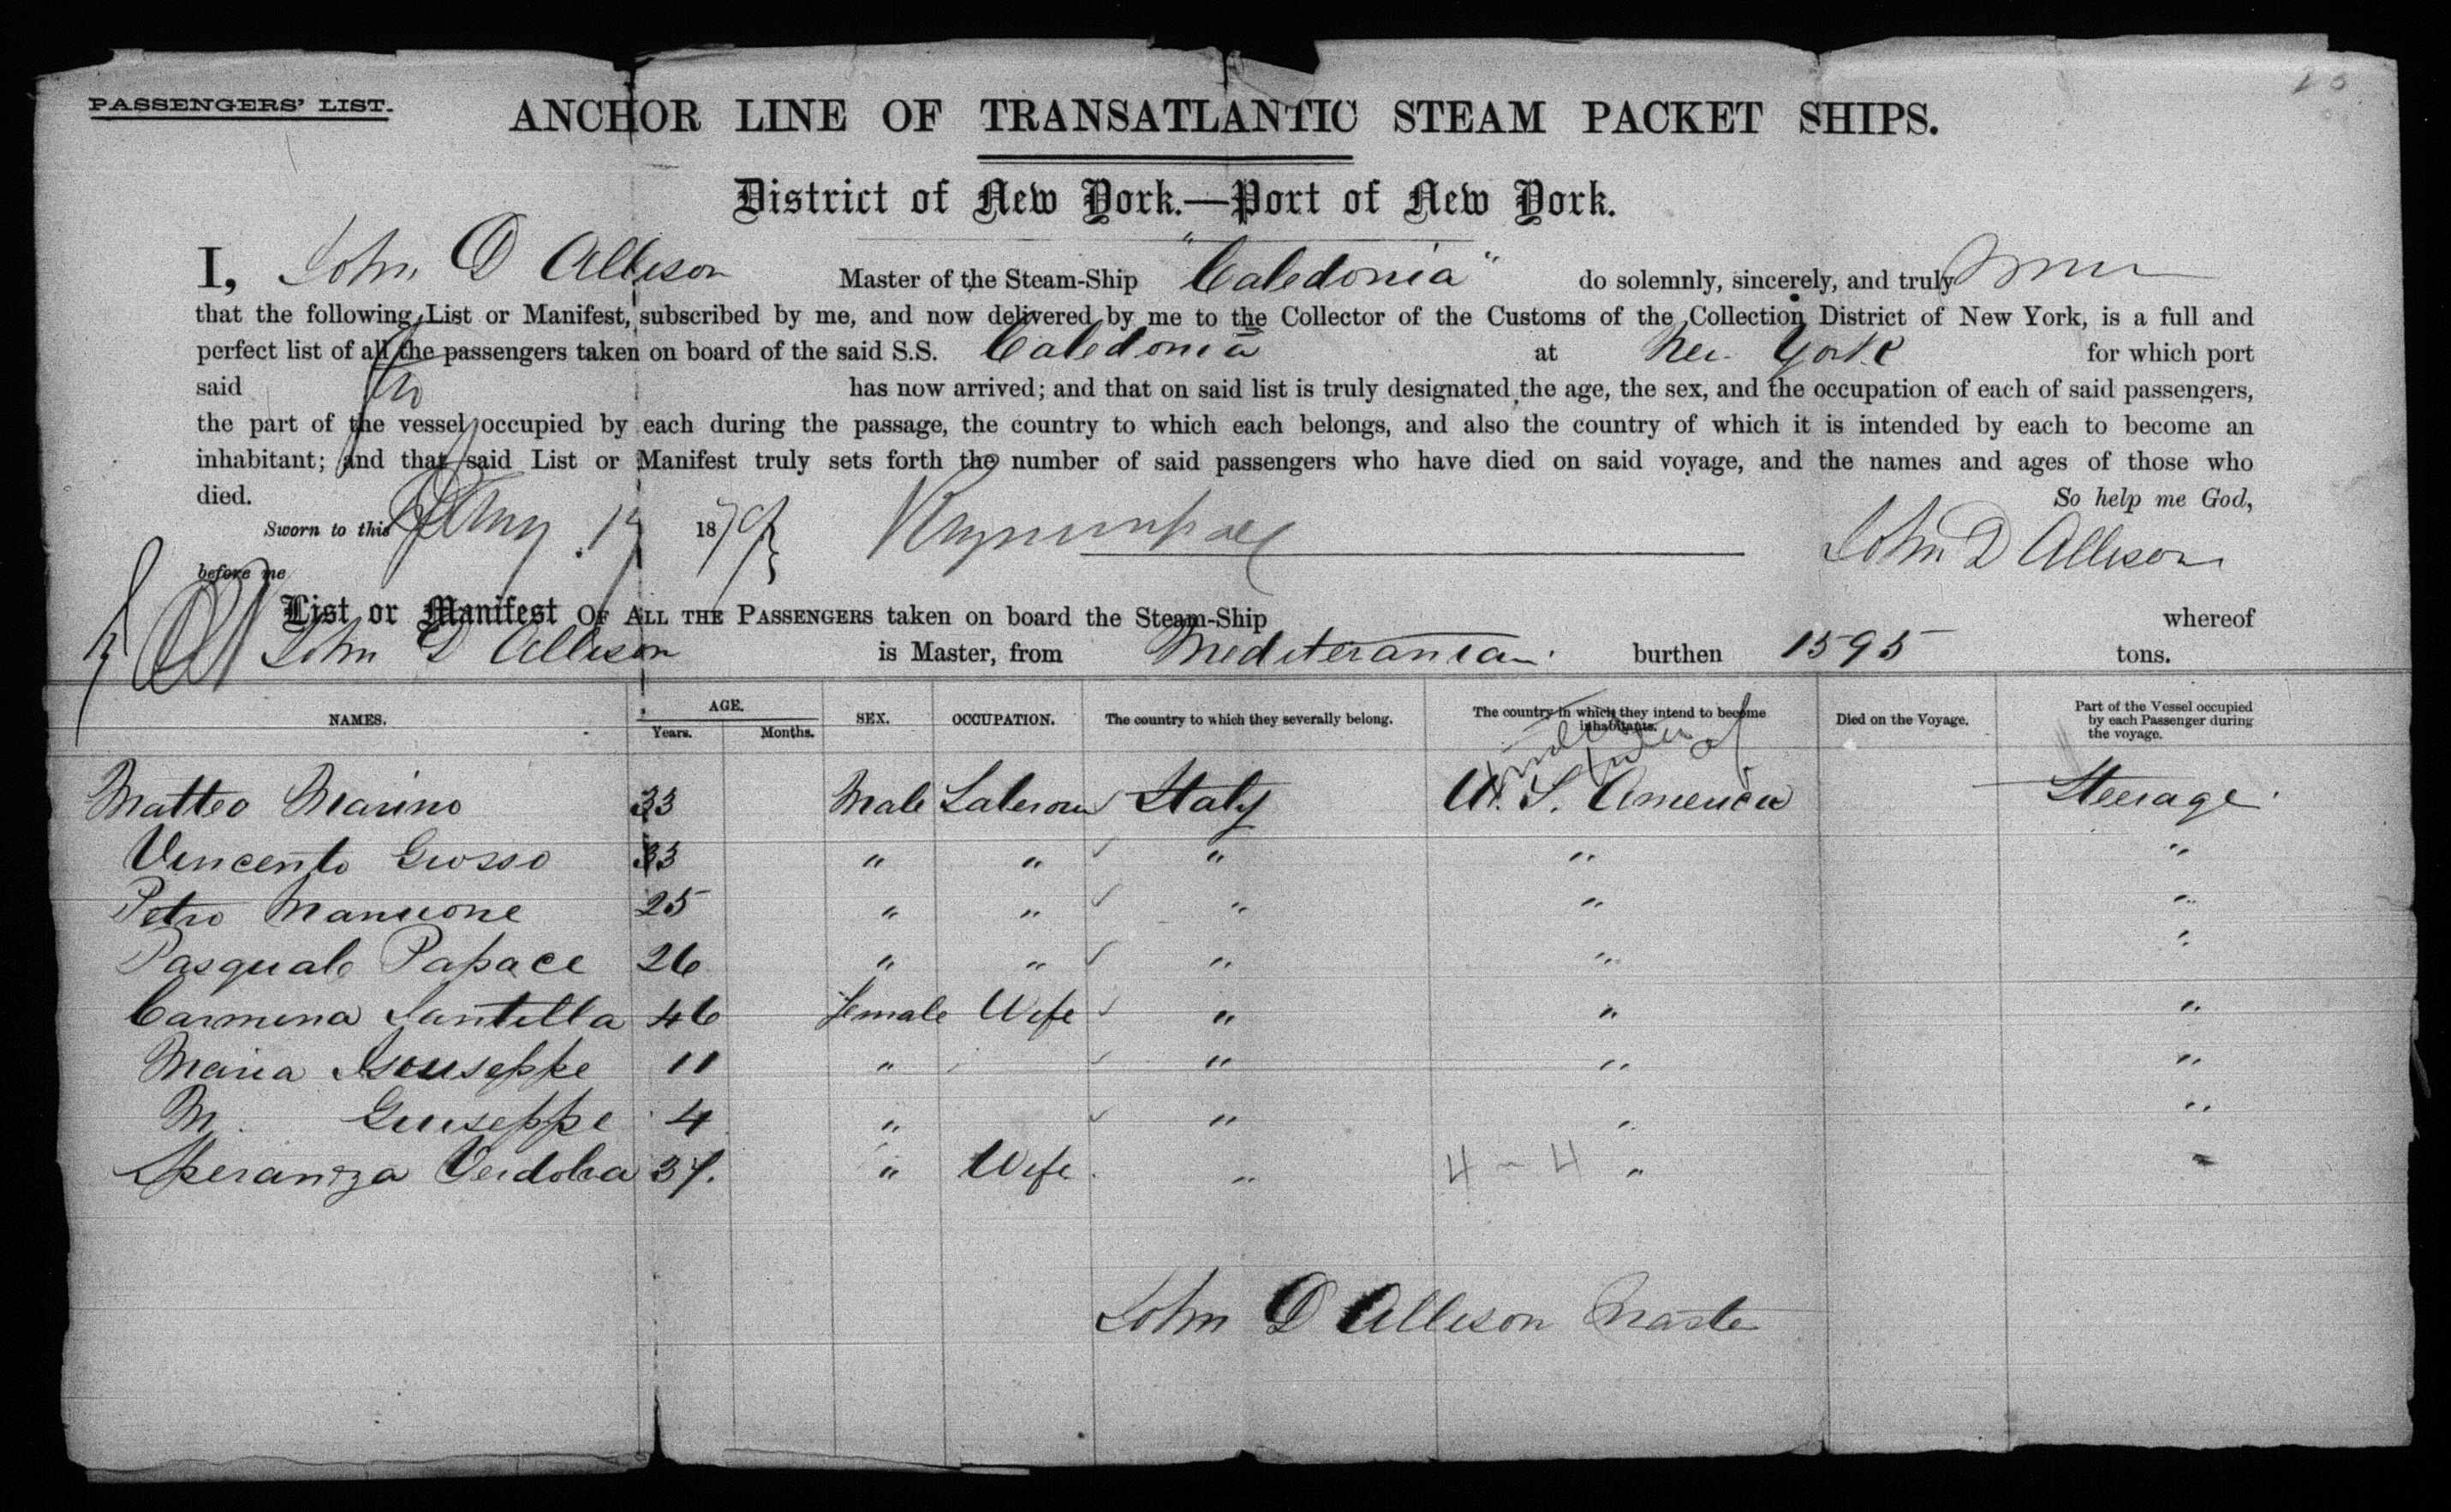 PASSENGERS' LIST.
ANCHOR LINE OF TRANSATLANTIC STEAM PACKET SHIPS.
District of New York.—Port of New York.
I, John D Allison Master of the Steam-Ship "Caledonia" do solemnly, sincerely, and truly
that the following List or Manifest, subscribed by me, and now delivered by me to the Collector of the Customs of the Collection District of New York, is a full and
perfect list of all the passengers taken on board of the said S.S. Caledonia at New York for which port
said has now arrived; and that on said list is truly designated the age, the sex, and the occupation of each of said passengers,
the part of the vessel occupied by each during the passage, the country to which each belongs, and also the country of which it is intended by each to become an
inhabitant; and that said List or Manifest truly sets forth the number of said passengers who have died on said voyage, and the names and ages of those who
died. So help me God,
Sworn to this 1879 John D Allison
before me
List or Manifest OF ALL THE PASSENGERS taken on board the Steam-Ship whereof
John D Allison is Master, from Mediteranean burthen 1595 tons.
NAMES. AGE. Years. Months. SEX. OCCUPATION. The country to which they severally belong. The country in which they intend to become inhabitants. Died on the Voyage. Part of the Vessel occupied by each Passenger during the voyage.
Matteo Marino 33 Male Labourer Italy U. S. America Steerage.
Vincento Grosso 33 " " " " "
Petro 25 " " " " "
Pasquale Papace 26 " " " " "
Carmena Santella 46 female Wife " " "
Maria 11 " " " "
M. Guiseppe 4 " " " "
Speranza 37. " Wife " 4 - 4 " "
John D Allison Master